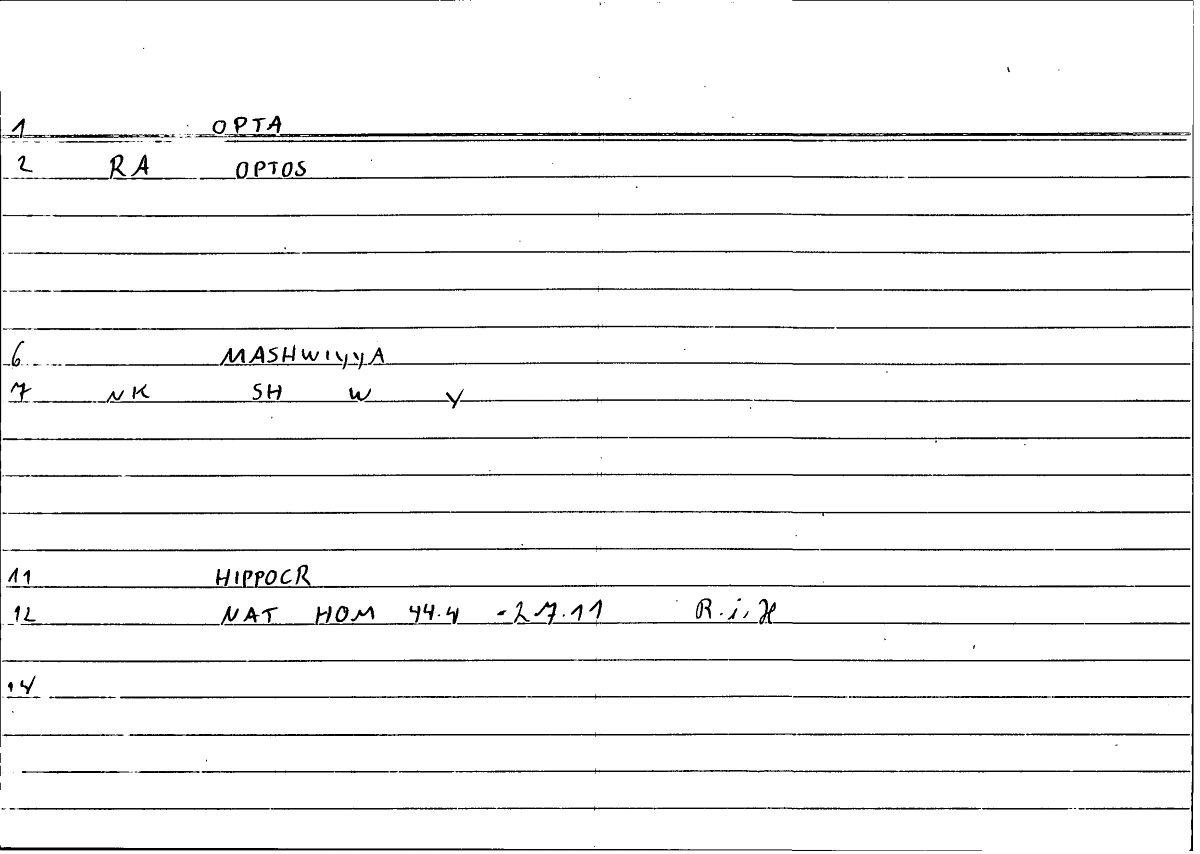 1 OPTA
2 RA OPTOS
6 MASHWIYYA
7 NK SH W Y
11 HIPPOCR
12 NAT HOM 44.4 -27.11 R.i.H
14